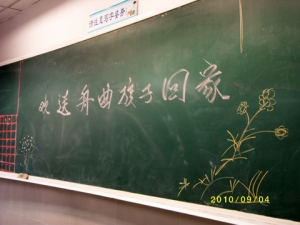 欢送舟曲孩子回家
2010/09/04